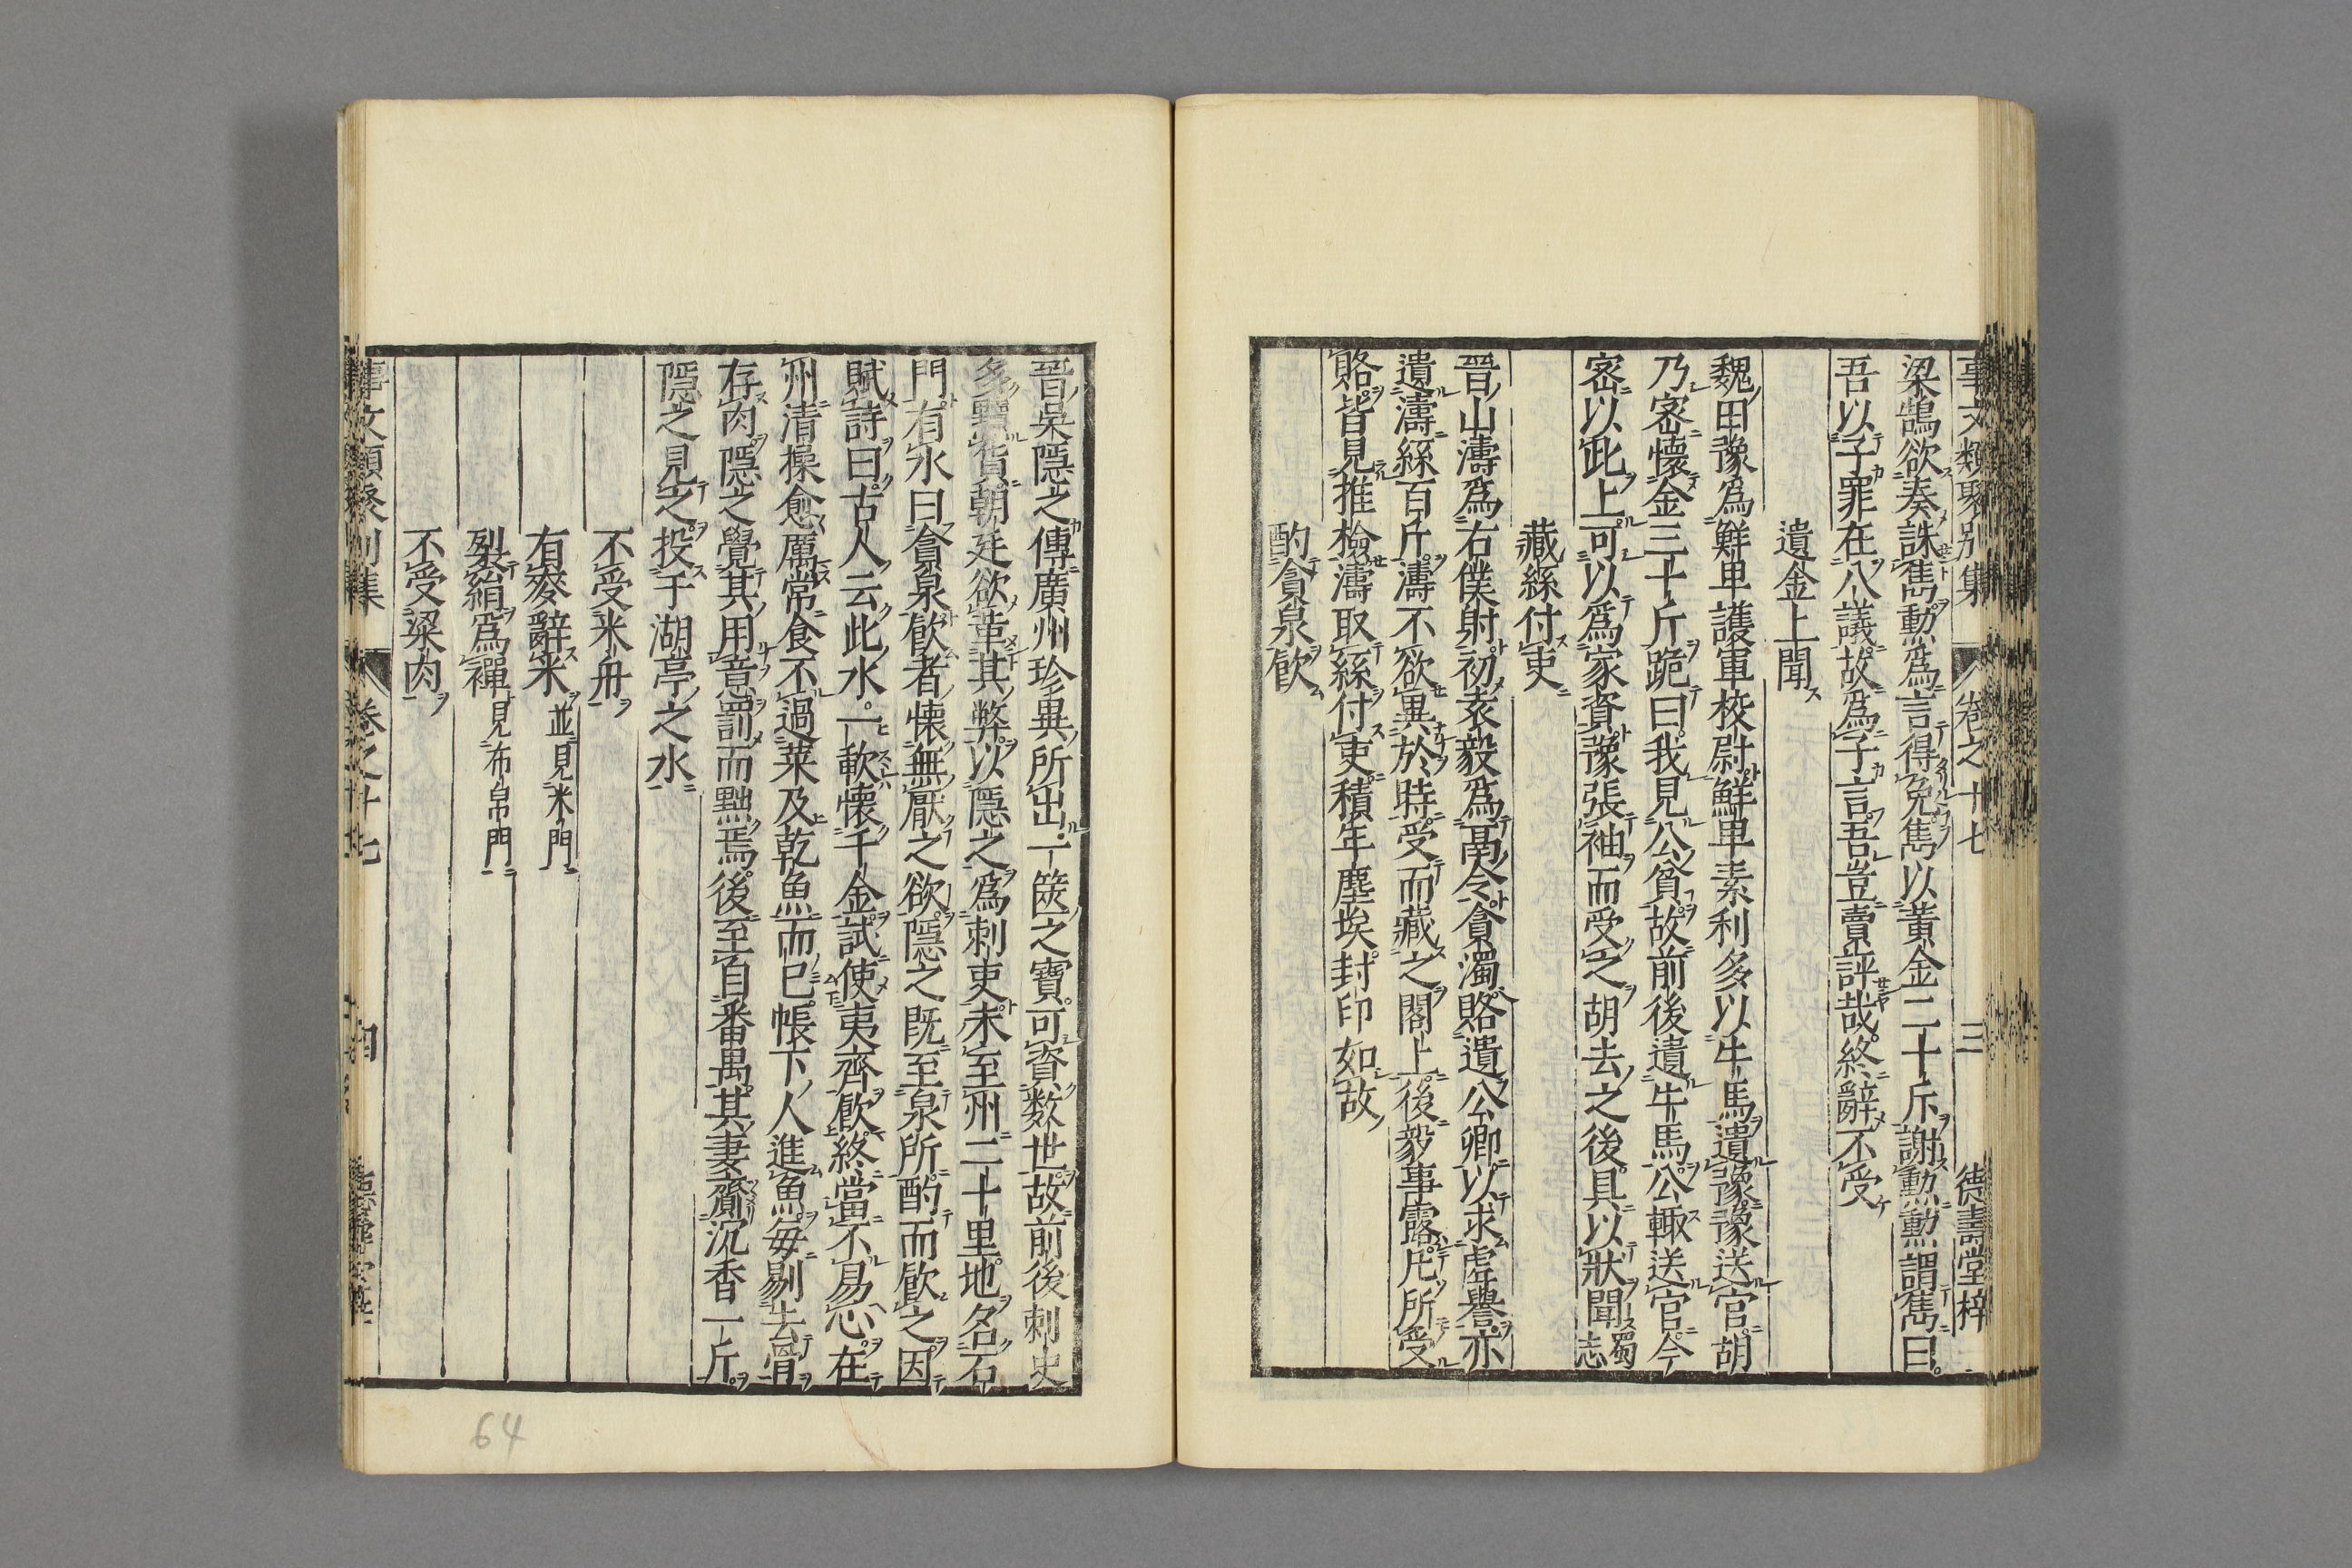 事文類聚別集 卷之十七 三 德壽堂梓
梁鵠欲奏誅雋勳爲言得免雋以黄金二十斤謝勳勳謂雋曰
吾以子罪在八議故爲子言吾豈賣評哉終辭不受
遺金上聞
魏田豫爲鮮卑護軍校尉鮮卑素利多以牛馬遺豫豫送官胡
乃密懷金三十斤跪曰我見公貧故前後遺牛馬公輙送官今
密以此上可以爲家資豫張袖而受之胡去之後具以狀聞蜀志
藏絲付吏
晉山濤爲右僕射初袁毅爲鬲令貪濁賂遺公卿以求虗譽亦
遺濤絲百斤濤不欲異於時受而藏之閣上後毅事露凡所受
賂皆見推檢濤取絲付吏積年塵埃封印如故
酌貪泉飮
晉吳隱之傳廣州珍異所出一篋之寶可資数世故前後刺史
多黷貨朝廷欲革其弊以隱之爲刺吏未至州二十里地名石
門有水曰貪泉飮者懐無厭之欲隱之既至泉所酌而飮之因
賦詩曰古人云此水一軟懐千金試使夷齊飮終當不易心在
州清操愈厲常食不過菜及乾魚而已帳下人進魚每剔去骨
存肉隱之覺其用意罰而黜焉後至自番禺其妻齎沉香一斤
隱之見之投于湖亭之水
不受米舟
有麥辭米 並見米門
裂絹爲襌 見布帛門
不受粱肉
事文類聚別集 卷之十七 四
64